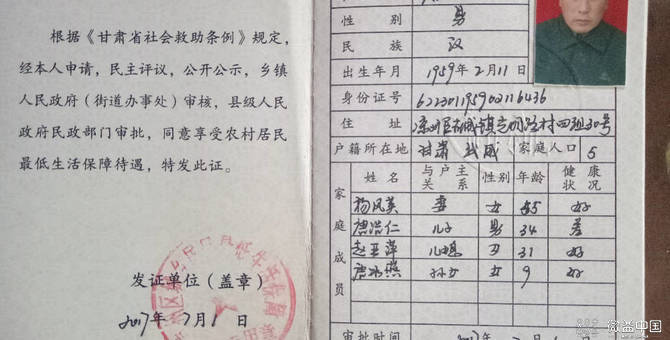 根据《甘肃省社会救助条例》规定，
经本人申请，民主评议，公开公示，乡镇
人民政府（街道办事处）审核，县级人民
政府民政部门审批，同意享受农村居民
最低生活保障待遇，特发此证。
发证单位（盖章）
2017年7月1日
性 别 男
民 族 汉
出生年月 1959年2月11日
身份证号 622301195902116436
住 址 镇 村四组30号
户籍所在地 甘肃 武威 家庭人口 5
家庭成员
姓名 与户主关系 性别 年龄 健康状况
杨凤英 妻 女 55 好
唐浩仁 儿子 男 34 差
赵亚萍 儿媳 女 31 好
唐 燕 孙女 女 9 好
审批时间 2017年7月1日
微益中国